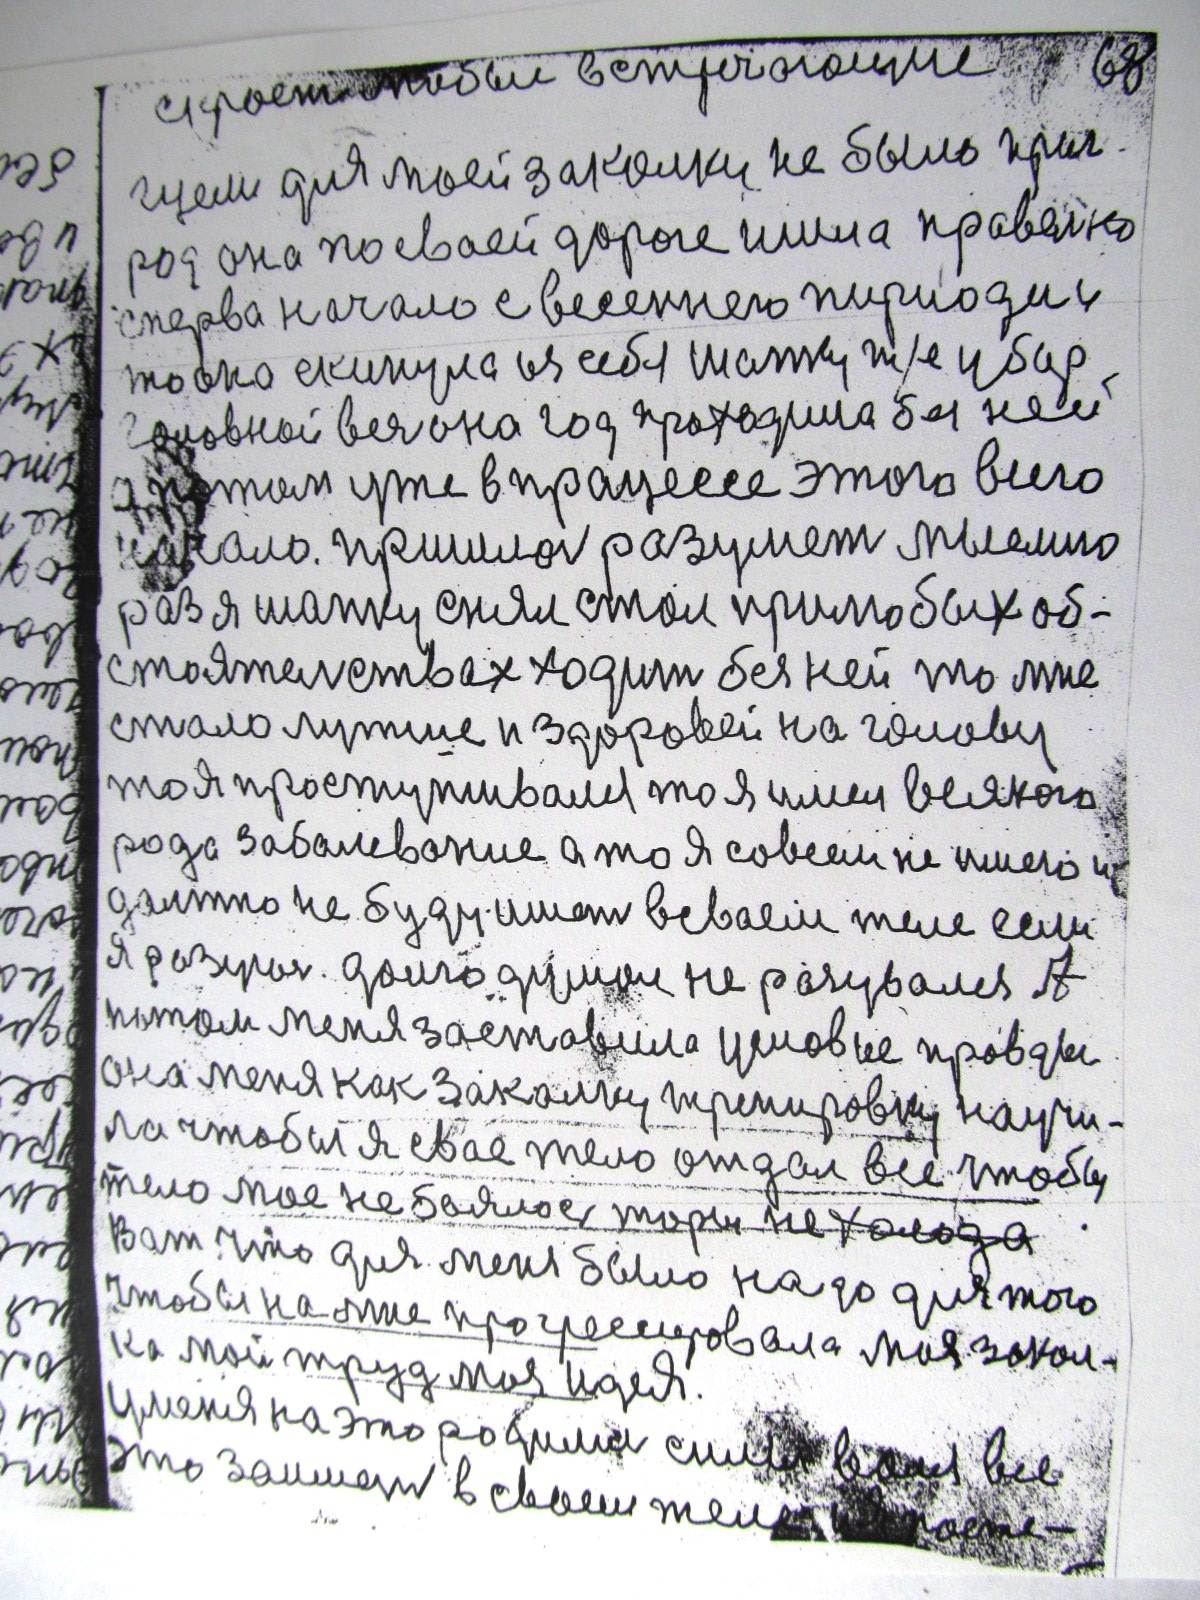 68
встречающие
щем для моей заколки не былоприг
род она по сваей дороге шила правелно
сперва начало с весеннего пириоди и
то она скинула ия себя шапку т/е убар
головной вея она год проходила бея неи
а потом уже в працессе этого всего
начало. пришлоя разумет мыслию
раз я шапку снял стал прилюбых об-
стоятелствах ходит бея ней то мне
стало лутше и здоровей на голову
то я простуживался то я имел всякого
рода забалевание а то я совсем не имею и
далжно не буду имет в сваем теле если
я разуюя. долго думал не разувался А
потом меня заставила условие правды
она меня как закалку тренировку научи-
ла чтобы я свае тело отдал все чтобы
тело мое не баялос жары не холода
Ват что для меня было надо для того
чтобы на мне прогрессировала моя закал-
ка мой труд моя идея.
У меня на это родилис силы воля все
это заимет в своем теле